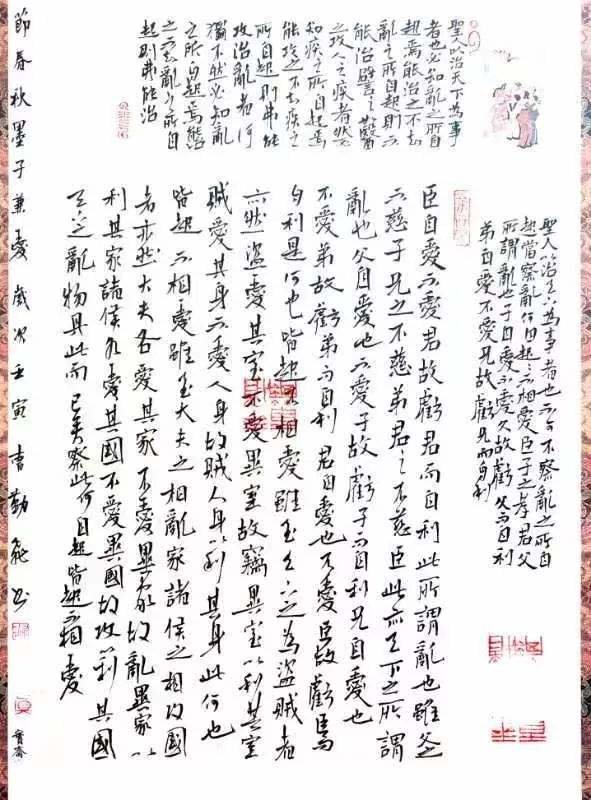 聖人以治天下為事
者也必知亂之所自
起焉能治之不知
亂之所自起則不
能治譬之醫
之攻人之疾者然必
知疾之所自起焉
能攻之不知疾之
所自起則弗能
攻治亂者何
獨不然必知亂
之所自起焉能
之亂之所自
起則弗能治
聖人以治天下為事者也不可不察亂之所自
起當察亂何自起起不相愛臣子之孝君父
所謂亂也子自愛不愛父故虧父而自利
弟自愛不愛兄故虧兄而自利
臣自愛不愛君故虧君而自利此所謂亂也雖父之
不慈子兄之不慈弟君之不慈臣此亦天下之所謂
亂也父自愛也不愛子故虧子而自利兄自愛也
不愛弟故虧弟而自利君自愛也不愛臣故虧臣而
自利是何也皆起不相愛雖至天下之為盜賊者
亦然盜愛其室不愛異室故竊異室以利其室
賊愛其身不愛人身故賊人身以利其身此何也
皆起不相愛雖至大夫之相亂家諸侯之相攻國
者亦然大夫各愛其家不愛異家故亂異家以
利其家諸侯各愛其國不愛異國故攻利其國
天下之亂物具此而已矣察此何自起皆起不相愛
節春秋墨子兼愛歲次壬寅勤能书